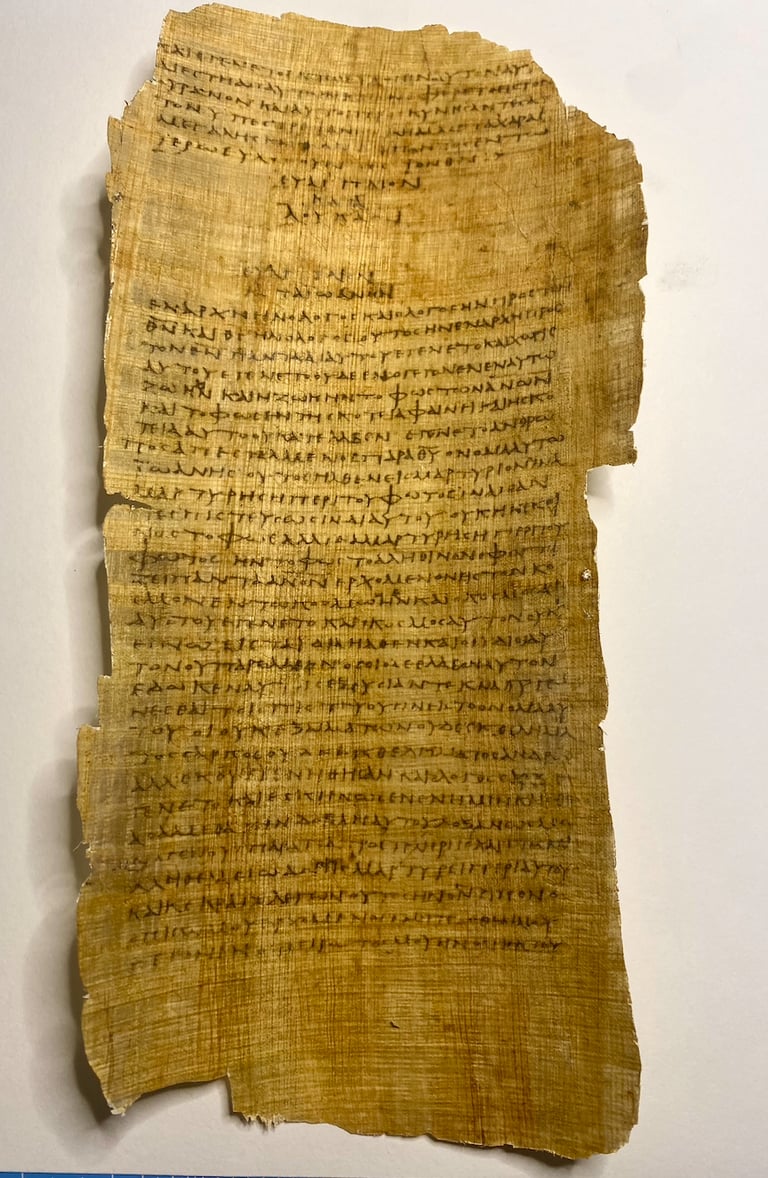 ΚΑΙ ΕΓΕΝΕΤΟ ΑΥΤΟΝ ΑΥ
ΔΙΕΣΤΗ ΕΦΕΡΕΤΟ ΕΙΣ ΤΟΝ
ΟΥΡΑΝΟΝ ΚΑΙ ΑΥΤΟΙ ΠΡΟΣΚΥΝΗΣΑΝΤΕΣ Α
ΤΟΝ ΥΠΕΣΤΡΕΨΑΝ ΜΕΤΑ ΧΑΡΑΣ
ΜΕΓΑΛΗΣ ΕΝ ΤΩ
ΙΕΡΩ ΕΥΛΟΓΟΥΝΤΕΣ ΤΟΝ ΘΝ
ΕΥΑΓΓΕΛΙΟΝ
ΚΑΤΑ
ΛΟΥΚΑΝ
ΕΥΑΓΓΕΛΙΟΝ
ΚΑΤΑ ΙΩΑΝΗΝ
ΕΝ ΑΡΧΗ ΗΝ Ο ΛΟΓΟΣ ΚΑΙ Ο ΛΟΓΟΣ ΗΝ ΠΡΟΣ ΤΟΝ
ΘΝ ΚΑΙ ΘΣ ΗΝ Ο ΛΟΓΟΣ ΟΥΤΟΣ ΗΝ ΕΝ ΑΡΧΗ ΠΡΟΣ
ΤΟΝ ΘΝ ΠΑΝΤΑ ΔΙ ΑΥΤΟΥ ΕΓΕΝΕΤΟ ΚΑΙ ΧΩΡΙΣ
ΑΥΤΟΥ ΕΓΕΝΕΤΟ ΟΥΔΕ ΕΝ Ο ΓΕΓΟΝΕΝ ΕΝ ΑΥΤΩ
ΖΩΗ ΗΝ ΚΑΙ Η ΖΩΗ ΗΝ ΤΟ ΦΩΣ ΤΩΝ ΑΝΩΝ
ΚΑΙ ΤΟ ΦΩΣ ΕΝ ΤΗ ΣΚΟΤΕΙΑ ΦΑΙΝΕΙ ΚΑΙ Η ΣΚΟ
ΤΕΙΑ ΑΥΤΟ ΟΥ ΚΑΤΕΛΑΒΕΝ ΕΓΕΝΕΤΟ ΑΝΘΡΩ
ΠΟΣ ΑΠΕΣΤΑΛΜΕΝΟΣ ΠΑΡΑ ΘΥ ΟΝΟΜΑ ΑΥΤΩ
ΙΩΑΝΗΣ ΟΥΤΟΣ ΗΛΘΕΝ ΕΙΣ ΜΑΡΤΥΡΙΟΝ ΙΝΑ
ΜΑΡΤΥΡΗΣΗ ΠΕΡΙ ΤΟΥ ΦΩΤΟΣ ΙΝΑ ΠΑΝ
ΤΕΣ ΠΙΣΤΕΥΣΩΣΙΝ ΔΙ ΑΥΤΟΥ ΟΥΚ ΗΝ ΕΚΕΙ
ΝΟΣ ΤΟ ΦΩΣ ΑΛΛ ΙΝΑ ΜΑΡΤΥΡΗΣΗ ΠΕΡΙ ΤΟΥ
ΦΩΤΟΣ ΗΝ ΤΟ ΦΩΣ ΤΟ ΑΛΗΘΙΝΟΝ Ο ΦΩΤΙ
ΖΕΙ ΠΑΝΤΑ ΑΝΟΝ ΕΡΧΟΜΕΝΟΝ ΕΙΣ ΤΟΝ ΚΟ
ΣΜΟΝ ΕΝ ΤΩ ΚΟΣΜΩ ΗΝ ΚΑΙ Ο ΚΟΣΜΟΣ ΔΙ
ΑΥΤΟΥ ΕΓΕΝΕΤΟ ΚΑΙ Ο ΚΟΣΜΟΣ ΑΥΤΟΝ ΟΥΚ
ΕΓΝΩ ΕΙΣ ΤΑ ΙΔΙΑ ΗΛΘΕΝ ΚΑΙ ΟΙ ΙΔΙΟΙ ΑΥ
ΤΟΝ ΟΥ ΠΑΡΕΛΑΒΟΝ ΟΣΟΙ ΔΕ ΕΛΑΒΟΝ ΑΥΤΟΝ
ΕΔΩΚΕΝ ΑΥΤΟΙΣ ΕΞΟΥΣΙΑΝ ΤΕΚΝΑ ΘΥ ΓΕ
ΝΕΣΘΑΙ ΤΟΙΣ ΠΙΣΤΕΥΟΥΣΙΝ ΕΙΣ ΤΟ ΟΝΟΜΑ ΑΥ
ΤΟΥ ΟΙ ΟΥΚ ΕΞ ΑΙΜΑΤΩΝ ΟΥΔΕ ΕΚ ΘΕΛΗΜΑ
ΤΟΣ ΣΑΡΚΟΣ ΟΥΔΕ ΕΚ ΘΕΛΗΜΑΤΟΣ ΑΝΔΡΟΣ
ΑΛΛ ΕΚ ΘΥ ΕΓΕΝΗΘΗΣΑΝ ΚΑΙ Ο ΛΟΓΟΣ ΣΑΡΞ Ε
ΓΕΝΕΤΟ ΚΑΙ ΕΣΚΗΝΩΣΕΝ ΕΝ ΗΜΙΝ ΚΑΙ ΕΘΕ
ΑΣΑΜΕΘΑ ΤΗΝ ΔΟΞΑΝ ΑΥΤΟΥ ΔΟΞΑΝ ΩΣ ΜΟ
ΝΟΓΕΝΟΥΣ ΠΑΡΑ ΠΑΤΡΟΣ ΠΛΗΡΗΣ ΧΑΡΙΤΟΣ ΚΑΙ
ΑΛΗΘΕΙΑΣ ΙΩΑΝΗΣ ΜΑΡΤΥΡΕΙ ΠΕΡΙ ΑΥΤΟΥ
ΚΑΙ ΚΕΚΡΑΓΕΝ ΛΕΓΩΝ ΟΥΤΟΣ ΗΝ ΟΝ ΕΙΠΟΝ Ο
ΟΠΙΣΩ ΜΟΥ ΕΡΧΟΜΕΝΟΣ ΕΜΠΡΟΣΘΕΝ ΜΟΥ
ΓΕΓΟΝΕΝ ΟΤΙ ΠΡΩΤΟΣ ΜΟΥ ΗΝ ΟΤΙ ΕΚ ΤΟΥ